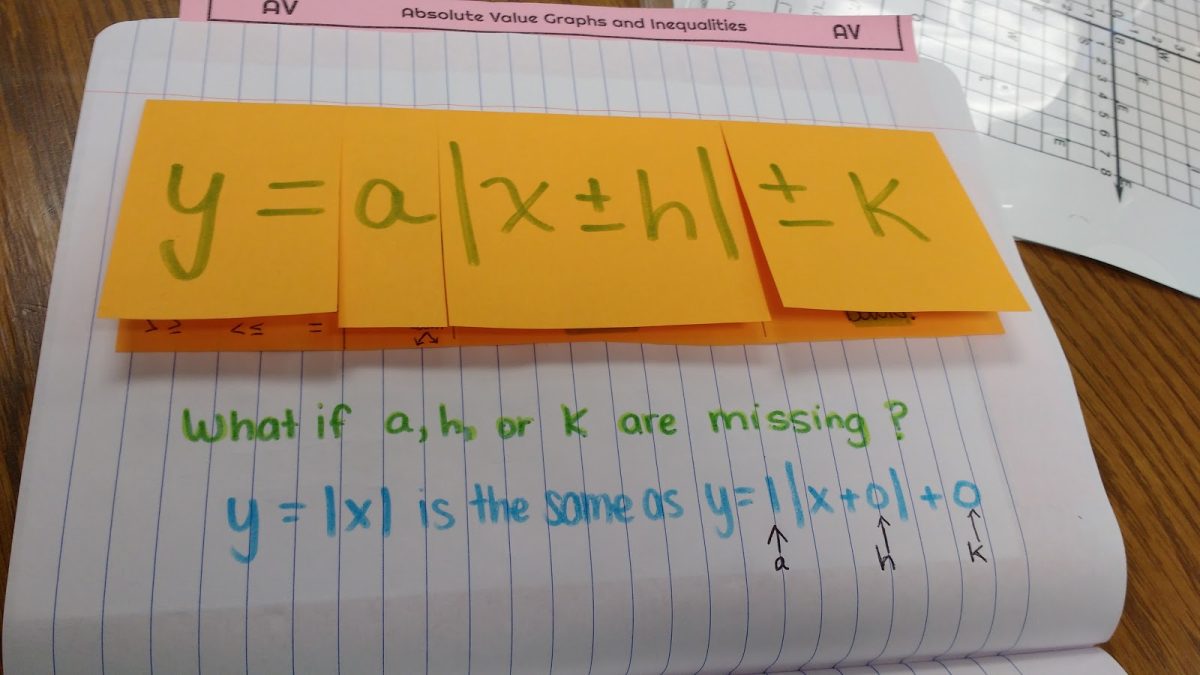 AV Absolute Value Graphs and Inequalities AV
y = a|x ± h| ± k
> ≥ < ≤ =
What if a, h, or k are missing?
y = |x| is the same as y = 1|x + 0| + 0
a h k